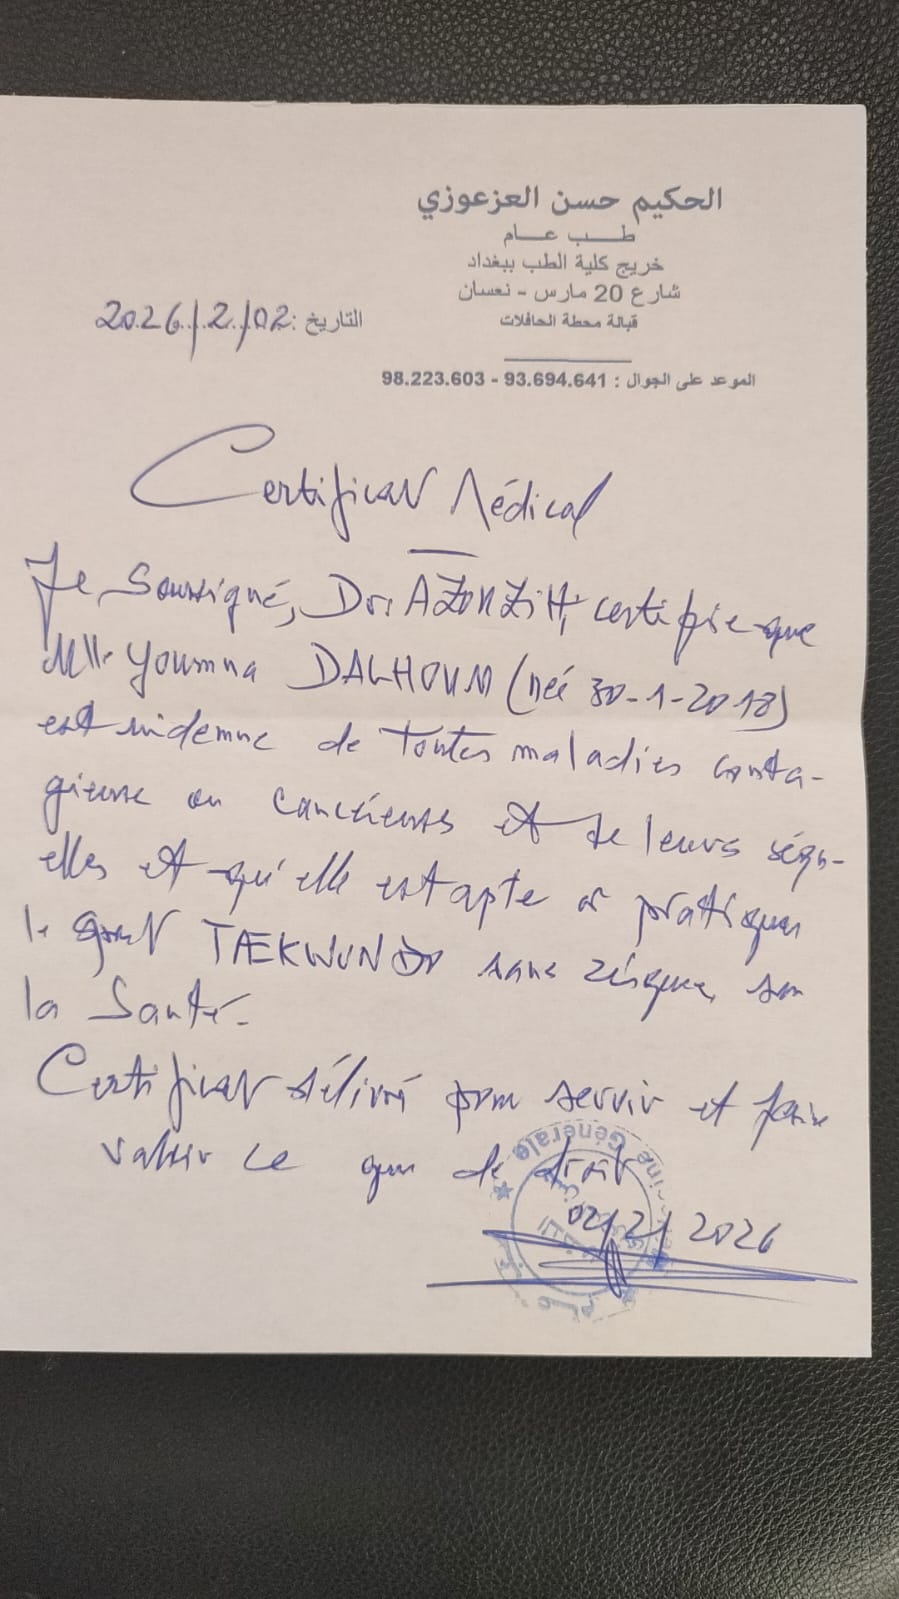 الحكيم حسن العزعوزي
طـــب عـــام
خريج كلية الطب ببغداد
شارع 20 مارس - نعسان
قبالة محطة الحافلات
التاريخ: 2026/2/02
الموعد على الجوال : 93.694.641 - 98.223.603
Certificat Médical
Je Soussigné, Dr. certifie que
Mlle Youmna DALHOUM (née 30-1-2018)
est indemne de toutes maladies conta-
gieuse ou cancéreuses et de leurs séqu-
elles et qu'elle est apte à pratiquer
le sport TAEKWONDO sans risque, son
la Santé.
Certificat délivré pour servir et faire
valoir ce que de droit
02/2/2026
Générale